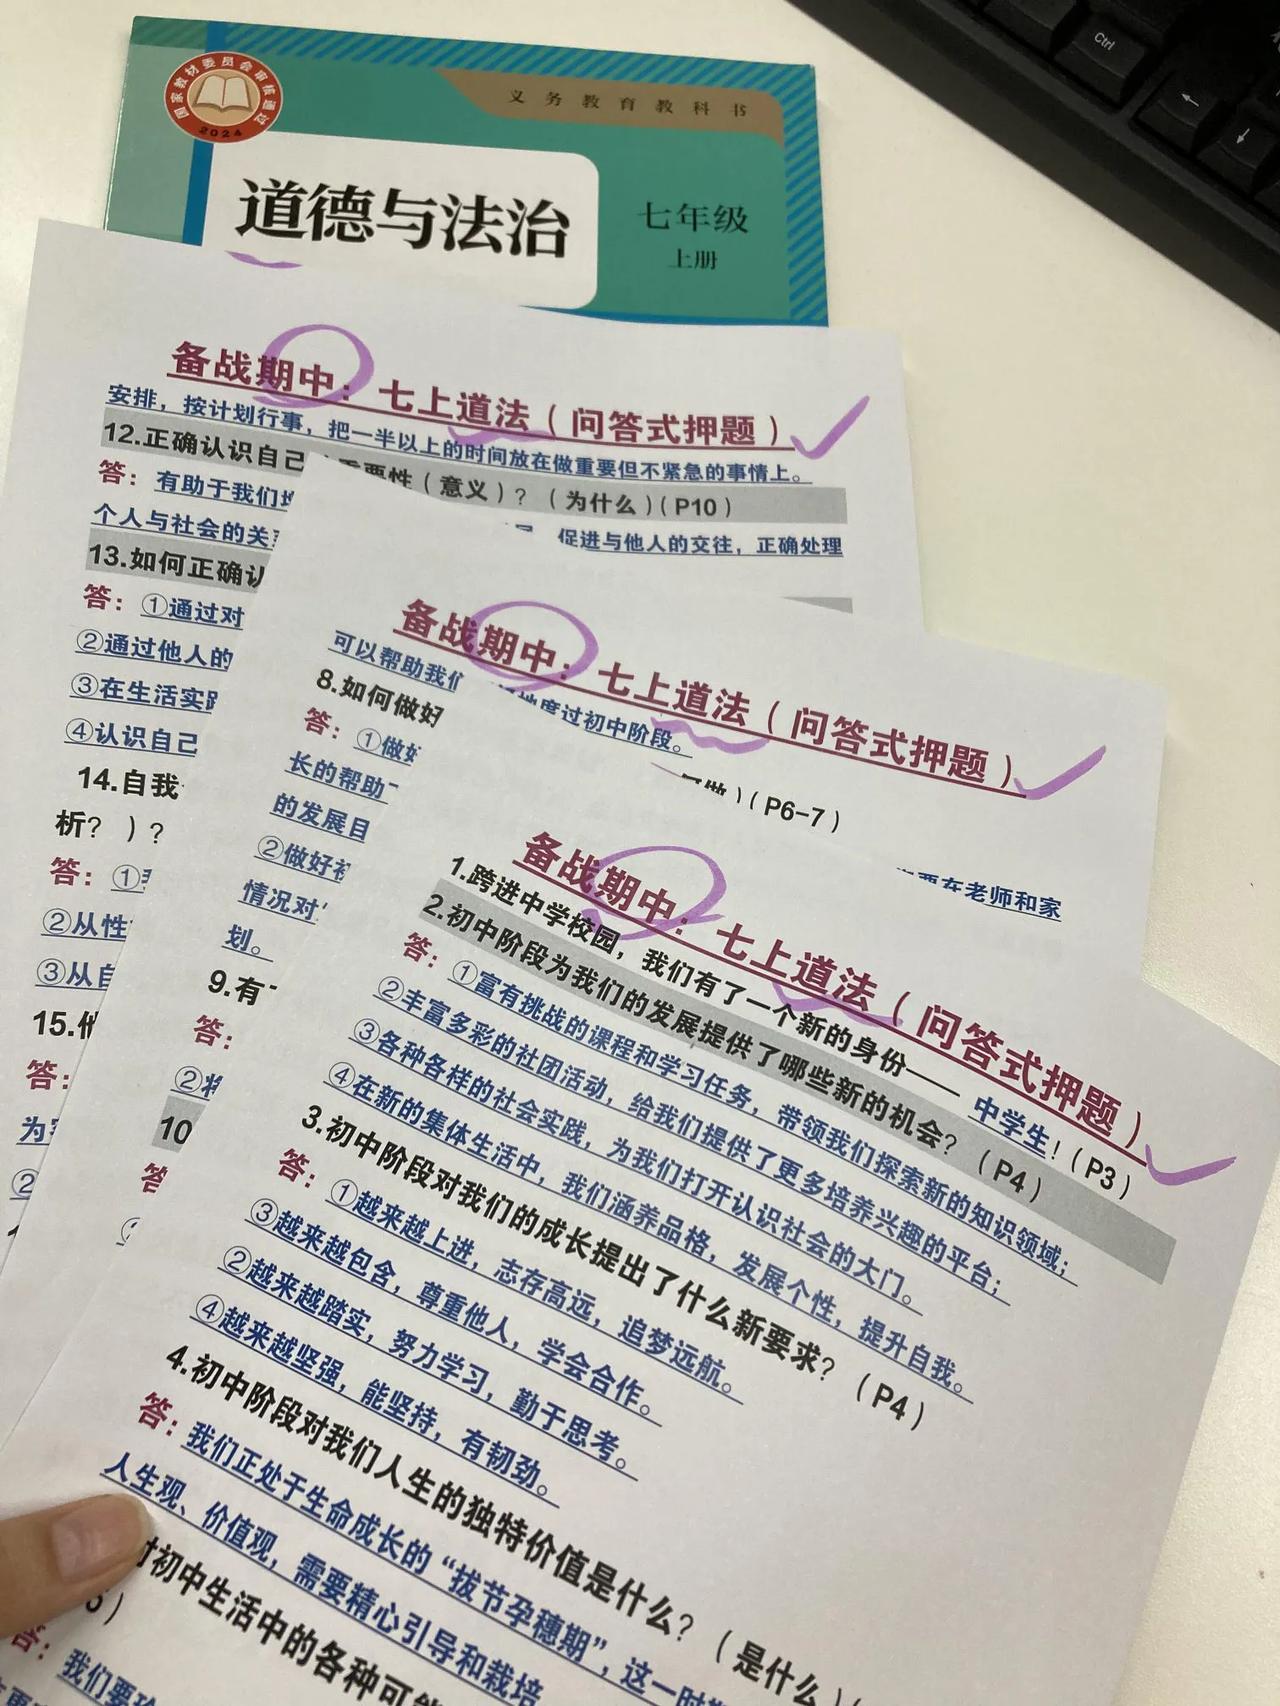 国家教材委员会审核通过
2024
义务教育教科书
道德与法治
七年级
上册
Ctrl
备战期中：七上道法（问答式押题）
安排，按计划行事，把一半以上的时间放在做重要但不紧急的事情上。
12.正确认识自己 重要性（意义）？（为什么）（P10）
答：有助于我们
促进与他人的交往，正确处理
个人与社会的关
13.如何正确认
答：①通过对
②通过他人的
③在生活实践
④认识自己
14.自我
析？）？
答：①
②从性
③从自
15.他
答：
为
②
备战期中：七上道法（问答式押题）
可以帮助我们 地度过初中阶段。
8.如何做好 做）（P6-7）
答：①做好 要在老师和家
长的帮助下
的发展目
②做好初
情况对
划。
9.有
答：
②将
10
答
备战期中：七上道法（问答式押题）
1.跨进中学校园，我们有了一个新的身份——中学生！（P3）
2.初中阶段为我们的发展提供了哪些新的机会？（P4）
答：①富有挑战的课程和学习任务，带领我们探索新的知识领域；
②丰富多彩的社团活动，给我们提供了更多培养兴趣的平台；
③各种各样的社会实践，为我们打开认识社会的大门。
④在新的集体生活中，我们涵养品格，发展个性，提升自我。
3.初中阶段对我们的成长提出了什么新要求？（P4）
答：①越来越上进，志存高远，追梦远航。
③越来越包含，尊重他人，学会合作。
②越来越踏实，努力学习，勤于思考。
④越来越坚强，能坚持，有韧劲。
4.初中阶段对我们人生的独特价值是什么？（是什么）
答：我们正处于生命成长的“拔节孕穗期”，这一时
人生观、价值观，需要精心引导和栽培
对初中生活中的各种可能
5）
答：我们要珍